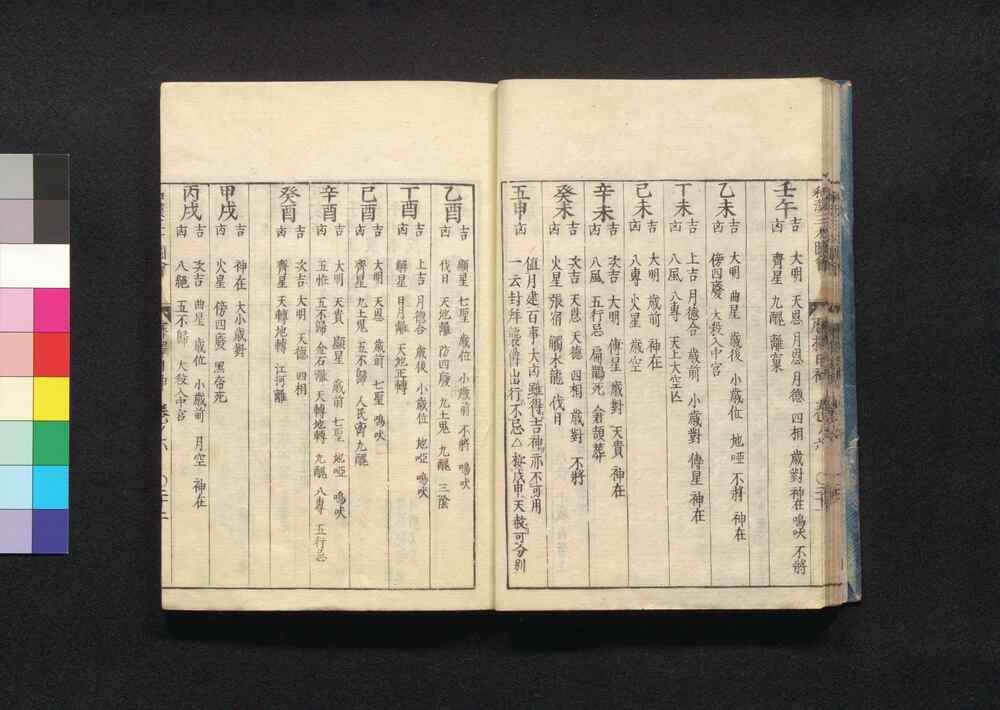 壬午
吉 大明 天恩 月恩 月德 四相 歳對 神在 鳴吠 不將
㐫 齊星 九醜 離窠
乙未
吉 大明 曲星 歳後 小歳位 地啞 不將 神在
㐫 傍四廢 大殺入中宮
丁未
吉 上吉 月德合 歳前 小歳對 傳星 神在
㐫 八風 八專 天上大空亡
己未
吉 大明 歳前 神在
㐫 八專 火星 歳空
辛未
吉 次吉 大明 傳星 歳對 天貴 神在
㐫 八風 五行忌 扁鵲死 倉頡葬
癸未
吉 次吉 天恩 天德 四相 歳對 不將
㐫 火星 張宿 觸水龍 伐日
五申
㐫 值月建百事大㐫雖得吉神亦不可用
一云封拜 出行不忌△按戊申天赦可分別
乙酉
吉 顯星 七聖 歳位 小歳前 不將 鳴吠
㐫 伐日 天地離 傍四廢 九土鬼 九醜 三陰
丁酉
吉 上吉 月德合 歳後 小歳位 地啞 鳴吠
㐫 解星 日月離 天地正轉
己酉
吉 大明 天恩 歳前 七聖 鳴吠
㐫 齊星 九土鬼 五不歸 人民離 九醜
辛酉
吉 大明 天貴 顯星 歳前 七聖 地啞 鳴吠
㐫 五不歸 金石離 天轉地轉 九醜 八專 五行忌
癸酉
吉 次吉 大明 天德 四相
㐫 齊星 天轉地轉 江河離
甲戌
吉 神在 大小歳對
㐫 火星 傍四廢 黑帝死
丙戌
吉 次吉 曲星 歳位 小歳前 月空 神在
㐫 八絕 五不歸 大殺入中宮